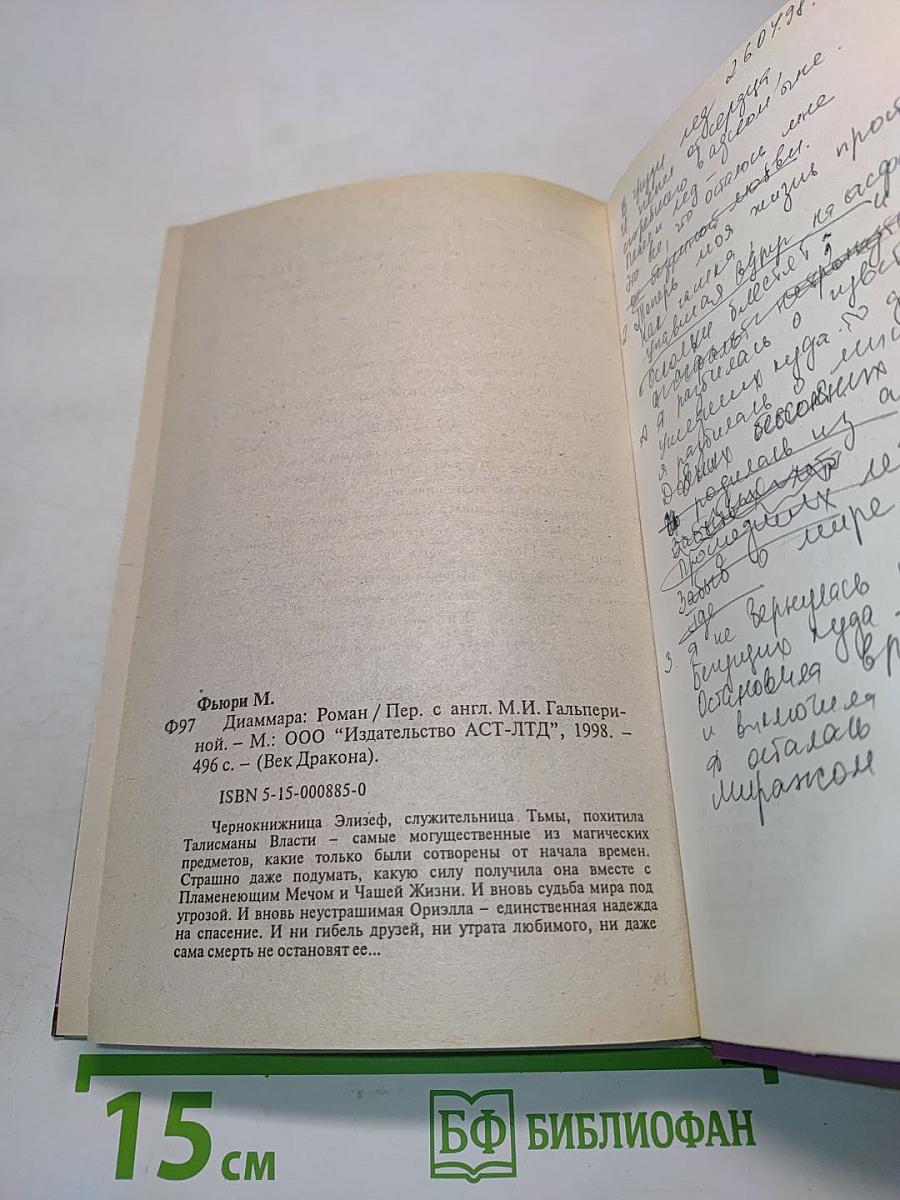 Фьюри М.
Ф97 Диаммара: Роман / Пер. с англ. М.И. Гальпери-
ной. – М.: ООО “Издательство АСТ-ЛТД”, 1998. –
496 с. – (Век Дракона).
ISBN 5-15-000885-0
Чернокнижница Элизеф, служительница Тьмы, похитила
Талисманы Власти – самые могущественные из магических
предметов, какие только были сотворены от начала времен.
Страшно даже подумать, какую силу получила она вместе с
Пламенеющим Мечом и Чашей Жизни. И вновь судьба мира под
угрозой. И вновь неустрашимая Ориэлла – единственная надежда
на спасение. И ни гибель друзей, ни утрата любимого, ни даже
сама смерть не остановят ее...
26.04.98.
лед
сердца
Пепел и лед –
это все, что осталось мне
от безумной любви.
2. Теперь моя жизнь
Как чашка,
упавшая вдруг на
осколки блестят
Я разбилась о
ушедших куда-то
я разбилась о
Давних бессонных
родилась из
Прошедших
Забыв о мире
где
3. Я не вернулась
бегущих куда –
Остановила
и выключила
Я осталась
Миражом
15 см
БФ БИБЛИОФАН